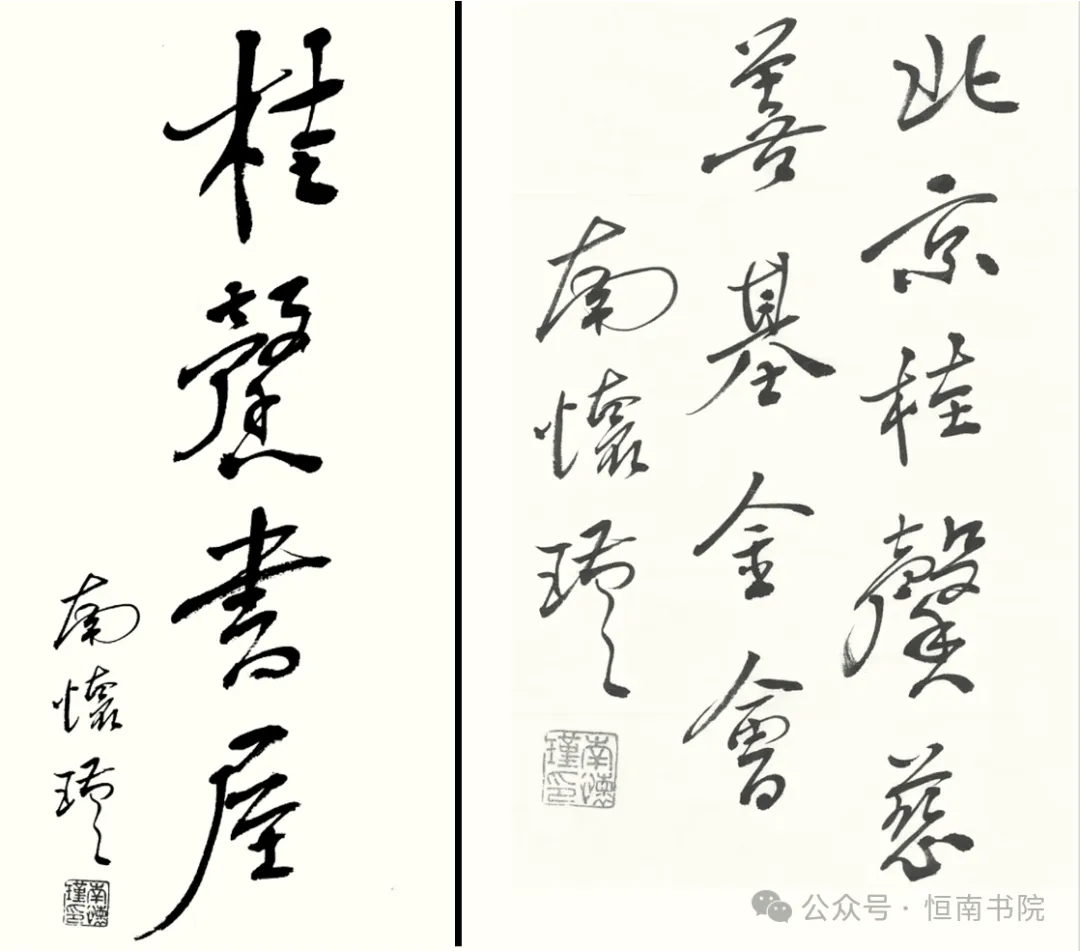 桂馨書屋
南懷瑾
南懷瑾印
北京桂馨慈
善基金會
南懷瑾
南懷瑾印
公众号·恒南书院